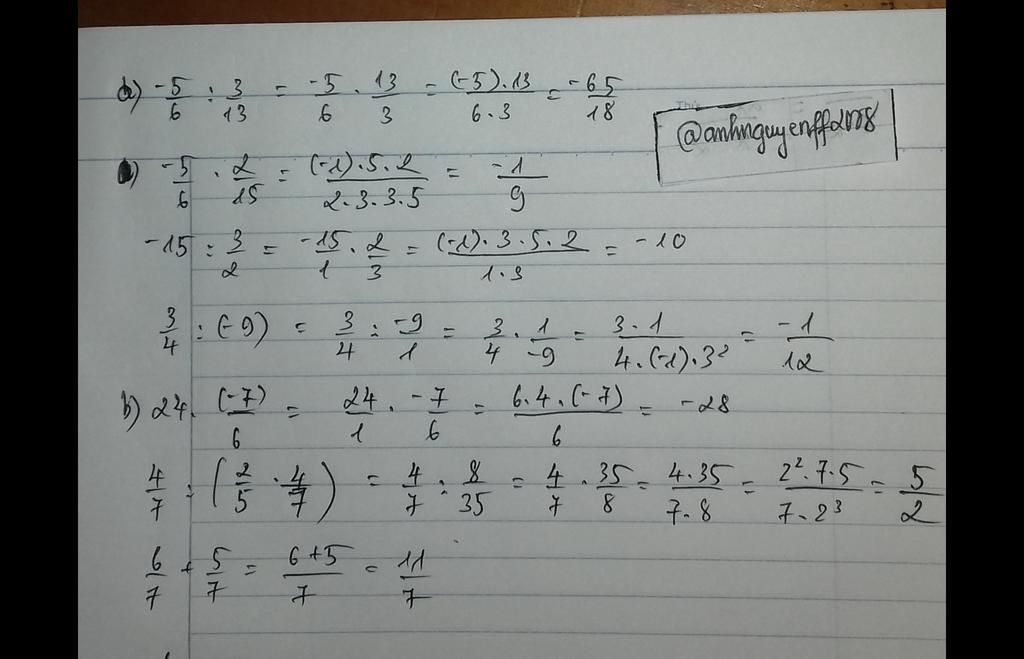 a) -5/6 : 3/13 = -5/6 . 13/3 = (-5).13/6.3 = -65/18
@anhnguyenff2008
-5/6 . 2/15 = (-1).5.2/2.3.3.5 = -1/9
-15 : 3/2 = -15/1 . 2/3 = (-1).3.5.2/1.3 = -10
3/4 : (-9) = 3/4 : -9/1 = 3/4 . 1/-9 = 3.1/4.(-1).3² = -1/12
b) 24 . (-7)/6 = 24/1 . -7/6 = 6.4.(-7)/6 = -28
4/7 : (2/5 . 4/7) = 4/7 : 8/35 = 4/7 . 35/8 = 4.35/7.8 = 2².7.5/7.2³ = 5/2
6/7 + 5/7 = 6+5/7 = 11/7